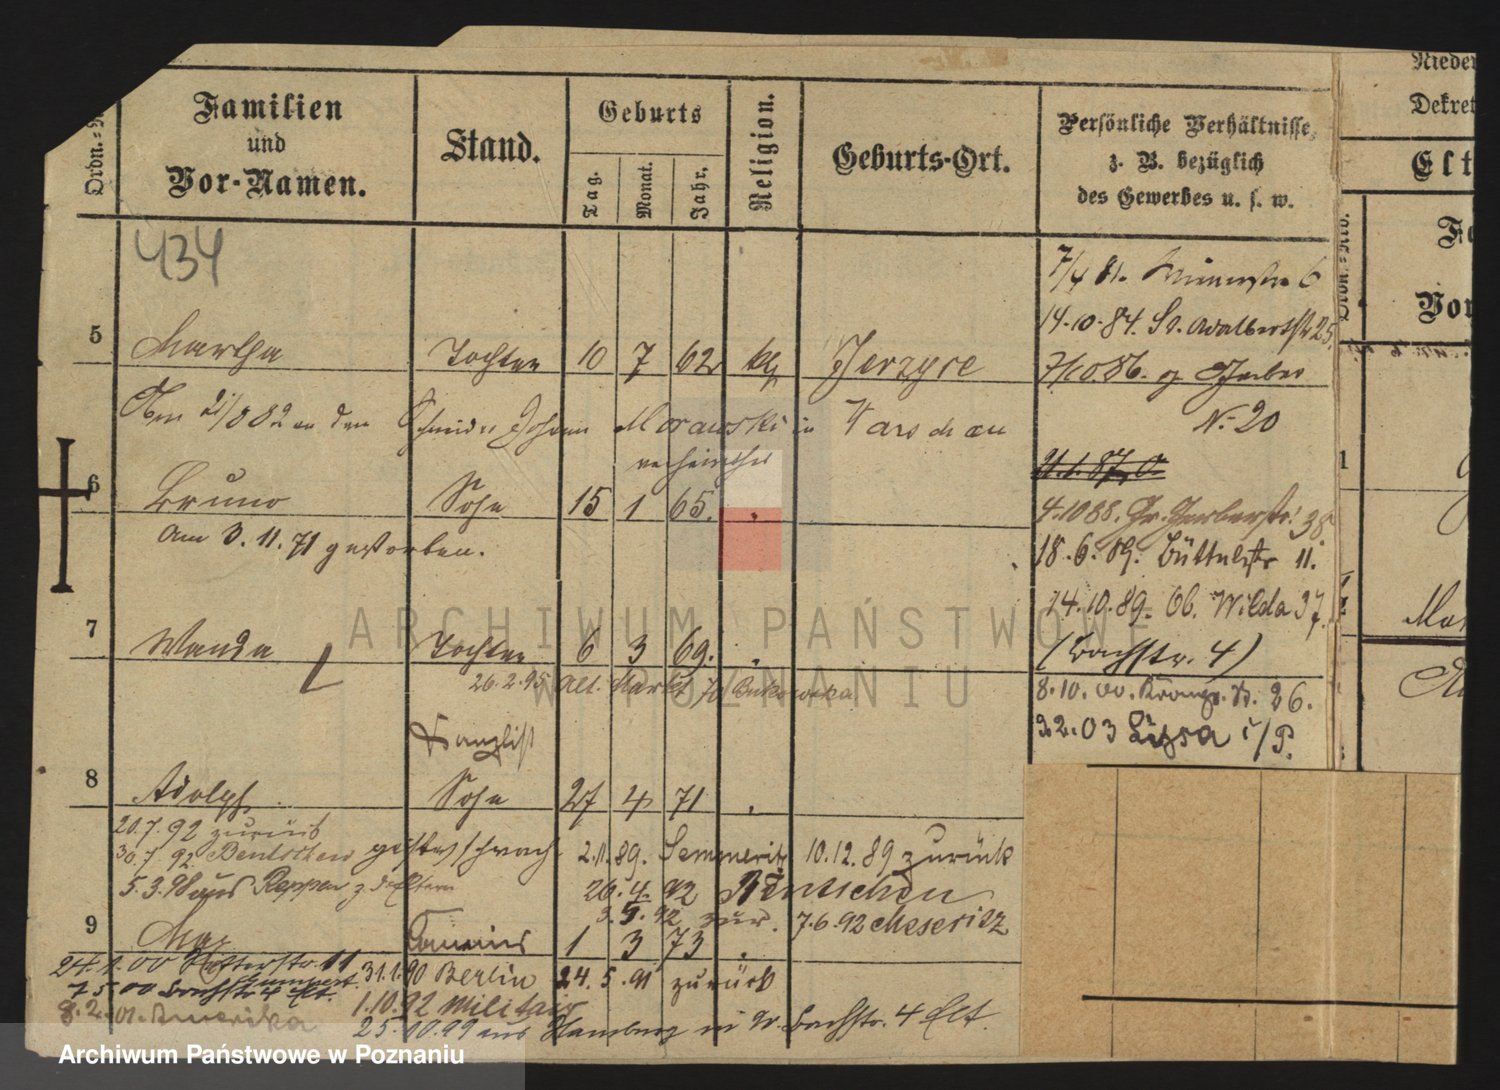 Ordn.=N
Familien
und
Vor-Namen.
Stand.
Geburts
Tag.
Monat.
Jahr.
Religion.
Geburts-Ort.
Persönliche Verhältnisse,
z. B. bezüglich
des Gewerbes u. s. w.
Nieder
Dekret
Elt
Ordn.=No.
Fa
Vor
434
7/4 81. 6
14.10.84. St. Adalbertstr 25.
5 Martha Tochter 10 7 62 kth Jerzyce
7/10 86. gr Gerber
No 20
Am 21/8 82 an den Schneider Johann Morawski in Warschau
verheirathet
21.1.87.
6 Bruno Sohn 15 1 65. "
Am 3.11.71 gestorben.
4.10 88. Gr. Gerberstr. 38.
18.6.89. Büttelstr 11.
14.10.89. Ob. Wilda 37.
(Bachstr. 4)
7 Wanda Tochter 6 3 69. "
26.2.95 Alt. Markt
8.10.00. Kronpr. Str. 26.
3.2.03 Lissa i/P.
Kanzlist
8 Adolph Sohn 27 4 71 "
20.7.92 zurück
30.7.92 Bentschen
5.3.98 aus Reppen z d Eltern
geistesschwach
2.11.89. 10.12.89 zurück
26.4.92 Bentschen
3.5.92 zur. 7.6.92 Meseritz
9 Max Commis 1 3 73 "
24.1.00 Ritterstr. 11
7 5 00 Bachstr 4 Elt.
8.2.01. Amerika
31.1.90 Berlin 24.5.91 zurück
1.10.92 Militair
25.10.99 aus Hamburg n. gr. Bachstr. 4 Elt.
1
ARCHIWUM PAŃSTWOWE
W POZNANIU
Archiwum Państwowe w Poznaniu